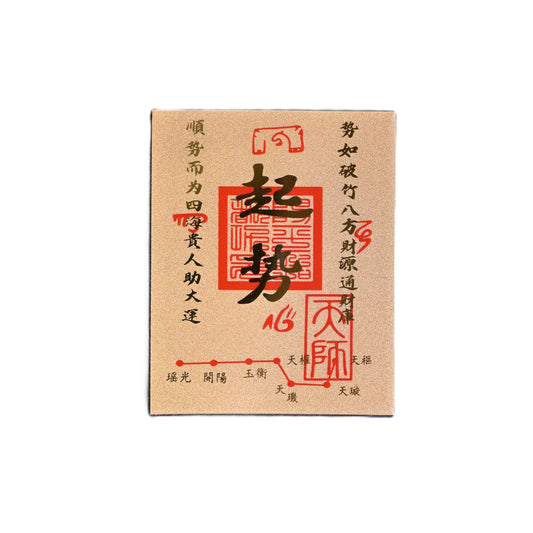 勢如破竹八方財源通財庫
起勢
順勢而为四海貴人助大運
天師
瑶光 開陽 玉衡 天權 天璣 天璇 天樞